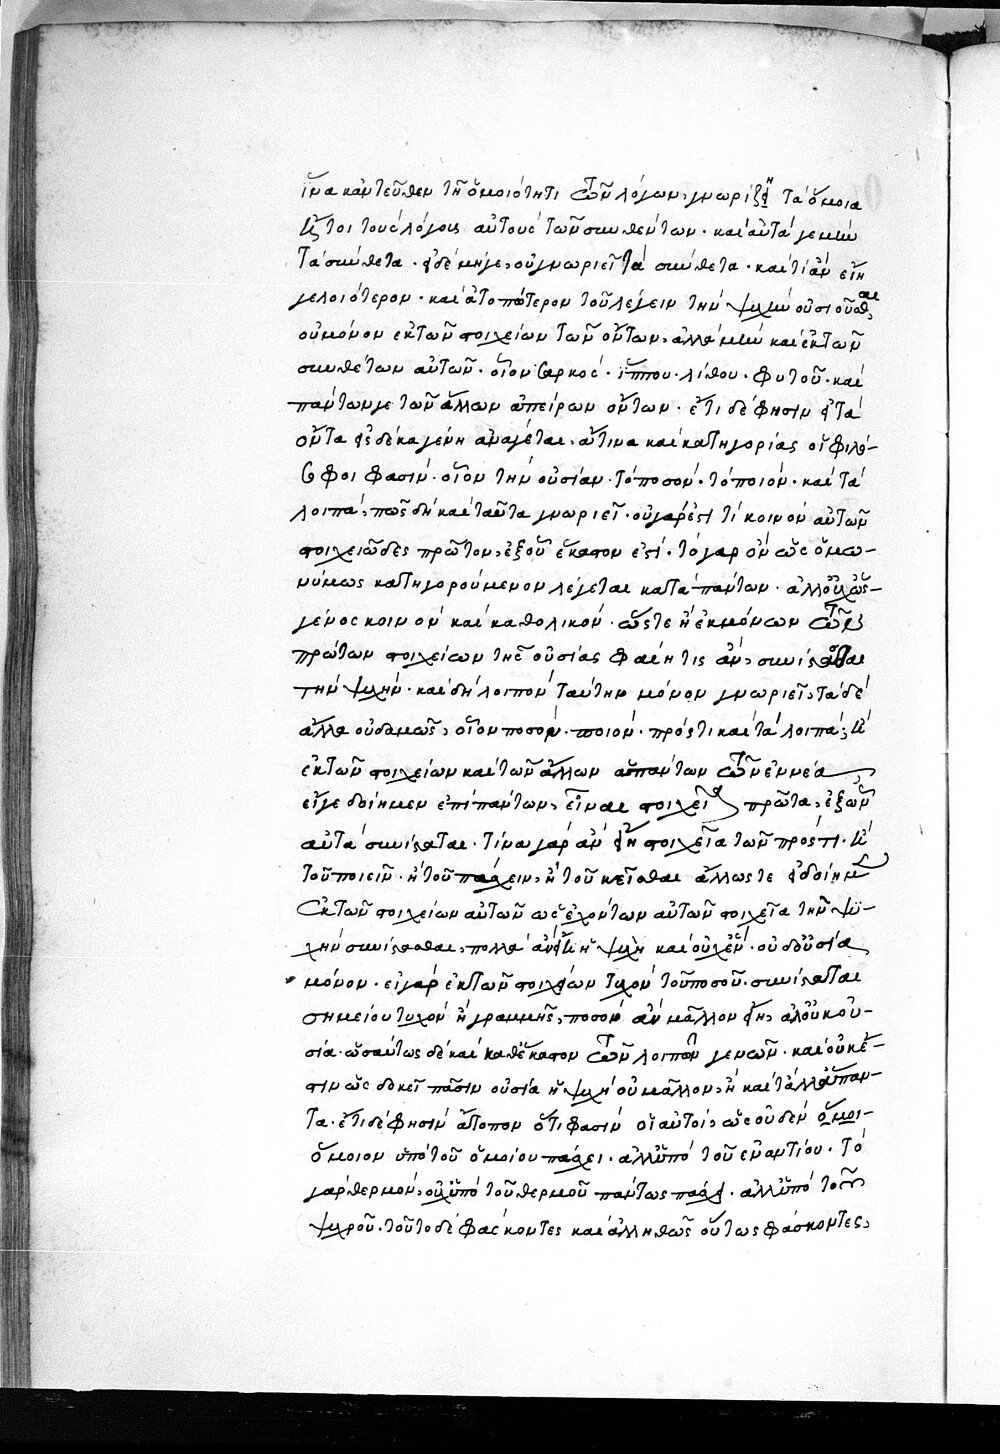 ἵνα κἀντεῦθεν τῇ ὁμοιότητι τῶν λόγων, γνωρίζῃ τὰ ὅμοια
ἤτοι τοὺς λόγους αὐτοὺς τῶν συνθέντων· καὶ αὐτά γε μὴν
τὰ σύνθετα· εἰ δὲ μή γε, οὐ γνωριεῖ τὰ σύνθετα· καὶ τί ἂν εἴη
γελοιότερον· καὶ ἀτοπώτερον τοῦ λέγειν τὴν ψυχὴν οὐσιοῦσθαι,
οὐ μόνον ἐκ τῶν στοιχείων τῶν ὄντων, ἀλλὰ μὴν καὶ ἐκ τῶν
συνθέτων αὐτῶν· οἷον σαρκός· ἵππου· λίθου· φυτοῦ· καὶ
πάντων γε τῶν ἄλλων ἀπείρων ὄντων· ἔτι δέ φησιν εἰ τὰ
ὄντα εἰς δέκα γένη ἀνάγεται, ἅτινα καὶ κατηγορίας οἱ φιλό-
σοφοι φασίν· οἷον τὴν οὐσίαν· τὸ ποσόν· τὸ ποιόν· καὶ τὰ
λοιπά, πῶς δὴ καὶ ταῦτα γνωριεῖ· οὐ γάρ ἐστι τί κοινὸν αὐτῶν
στοιχειῶδες πρῶτον, ἐξ οὗ ἕκαστον ἐστί· τὸ γὰρ ὂν ὡς ὁμω-
νύμως κατηγορούμενον λέγεται κατὰ πάντων· ἀλλ' οὐχ ὡς
γένος κοινὸν καὶ καθολικόν· ὥστε ἢ ἐκ μόνων τῶν
πρώτων στοιχείων τῆς οὐσίας φαίη τις ἂν, συνίστασθαι
τὴν ψυχήν· καὶ δὴ λοιπὸν ταύτην μόνον γνωριεῖ, τὰ δὲ
ἄλλα οὐδαμῶς, οἷον ποσόν· ποιόν· πρός τι καὶ τὰ λοιπά, ἢ
ἐκ τῶν στοιχείων καὶ τῶν ἄλλων ἁπάντων τῶν ἐννέα,
εἴγε δοίημεν ἐπὶ πάντων, εἶναι στοιχεῖα πρῶτα, ἐξ ὧν
αὐτὰ συνίσταται· τίνα γὰρ ἂν εἴη στοιχεῖα τῶν πρός τι· ἢ
τοῦ ποιεῖν· ἢ τοῦ πάσχειν, ἢ τοῦ κεῖσθαι ἄλλως τε εἰ δοίημεν
ἐκ τῶν στοιχείων αὐτῶν ὡς ἐχόντων αὐτῶν στοιχεῖα τὴν ψυ-
χὴν συνίστασθαι, πολλὰ ἂν εἴη ἡ ψυχὴ καὶ οὐχ ἕν· οὐδ' οὐσία
μόνον· εἰ γὰρ ἐκ τῶν στοιχείων τυχὸν τοῦ ποσοῦ· συνίσταται
σημείου τυχὸν ἢ γραμμῆς, ποσὸν ἂν μᾶλλον εἴη, ἀλλ' οὐκ οὐ-
σία· ὡσαύτως δὲ καὶ καθ' ἕκαστον τῶν λοιπῶν γενῶν· καὶ οὐκ ἔ-
στιν ὡς δοκεῖ πᾶσιν οὐσία ἡ ψυχὴ οὐ μᾶλλον, ἢ καὶ τἆλλα ἅπαν-
τα· ἔτι δέ φησιν ἄτοπον ὅτι φασὶν οἱ αὐτοί, ὡς οὐδὲν ὅμοι-
ὅμοιον ὑπὸ τοῦ ὁμοίου πάσχει· ἀλλ' ὑπὸ τοῦ ἐναντίου· τὸ
γὰρ θερμόν, οὐχ ὑπὸ τοῦ θερμοῦ πάντως πάσχει· ἀλλ' ὑπὸ τοῦ
ψυχροῦ· τοῦτο δὲ φάσκοντες καὶ ἀληθῶς οὕτως φάσκοντες,